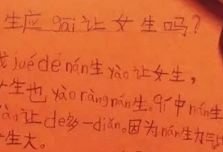 生应gāi让女生吗？
juéde nán生yào让女生，
生也yào ràng nán生。 nán生
让de多一diǎn。因为nán生力
生大。